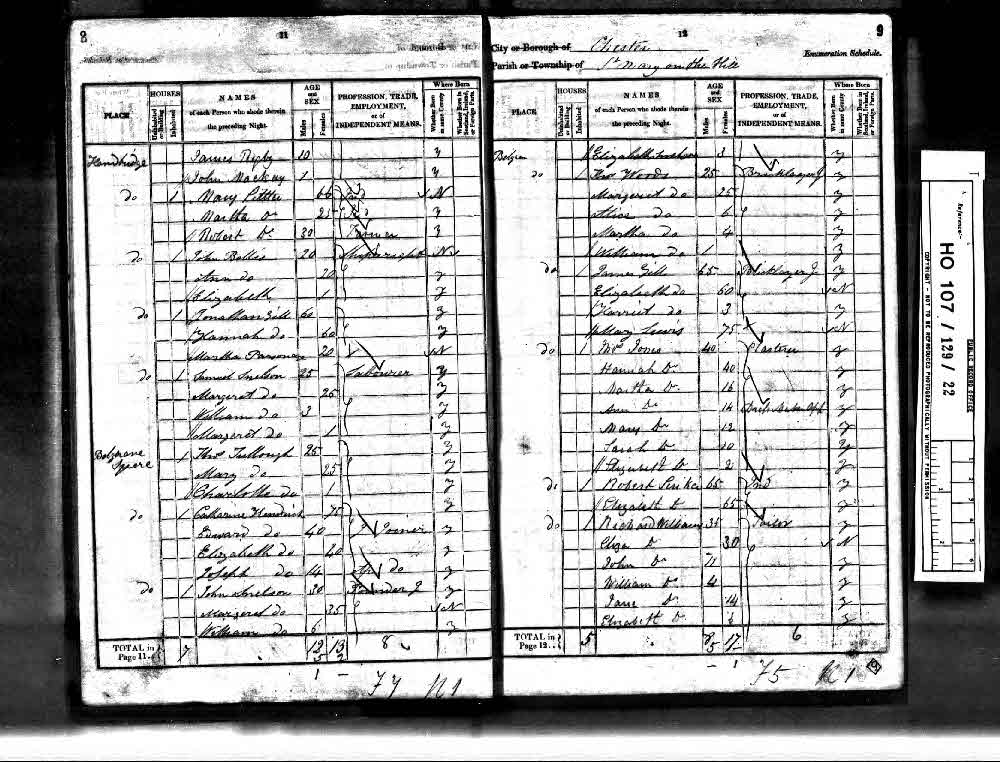 8
11
HOUSES
AGE and SEX
Where Born
PLACE
Uninhabited or Building
Inhabited
NAMES of each Person who abode therein the preceding Night.
Males
Females
PROFESSION, TRADE, EMPLOYMENT, or of INDEPENDENT MEANS.
Whether Born in same County
Whether Born in Scotland, Ireland, or Foreign Parts.
Handbridge James Rigby 10 y
John Mackay 1 y
do 1 Mary 66 Ind N
Martha Do 25 Ind y
Robert Do 30
do 1 John 20 Shipwright N
Ann do 20 y
Elizabeth 1 y
do 1 Jonathan Gill 60 y
Hannah do 60 y
Martha 20 N
do 1 Samuel Snelson 25 Labourer y
Margeret do 25 y
William do 3 y
Margeret do 1 y
Belgrave 1 Thos 25 y
Mary do 25 y
Charlotte do 1 y
do 1 Catharine 75 y
Edward do 40 Joiner y
Elizabeth do 40 y
Joseph do 14 do y
do 1 John Snelson 30 J y
Margeret do 35 N
William do 6 y
TOTAL in Page 11 7 12 13 8
5 2
1 –
77 N 1
9
12
City or Borough of Chester
Parish or Township of St Mary on the Hill
Enumeration Schedule.
HOUSES
AGE and SEX
Where Born
PLACE
Uninhabited or Building
Inhabited
NAMES of each Person who abode therein the preceding Night.
Males
Females
PROFESSION, TRADE, EMPLOYMENT, or of INDEPENDENT MEANS.
Whether Born in same County
Whether Born in Scotland, Ireland, or Foreign Parts.
Elizabeth 3 y
do 1 Thos Woods 25 Bricklayer J y
Margeret do 25 y
Alice do 6 y
Martha do 4 y
William do 1 y
do 1 James Gill 65 Bricklayer J y
Elizabeth do 60 N
Harriet do 3 y
Mary Lewis 75 N
do 1 Jones 40 Plasterer y
Hannah Do 40 y
Martha Do 16 y
Ann Do 14 y
Mary Do 12 y
Sarah Do 10 y
Elizabeth Do 2 y
do 1 Robert 65 Ind y
Elizabeth Do 65 y
do 1 Richard Williams 35 Tailor y
Eliza Do 30 N
John Do 11 y
William Do 4 y
Jane Do 14 y
Elizabeth Do 6 y
TOTAL in Page 12 5 8 17 6
5
– 1
75 N 1
Reference:-
HO 107 / 129 / 22
PUBLIC RECORD OFFICE
COPYRIGHT - NOT TO BE REPRODUCED PHOTOGRAPHICALLY WITHOUT PERMISSION